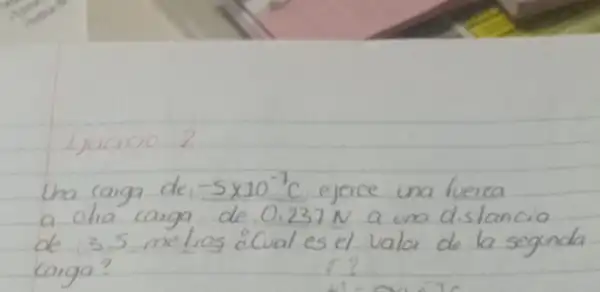 Ejercicio 2
Una carga de -5x10⁻⁷C ejerce una fuerza
a otra carga de 0.237 N a una distancia
de 3.5 metros ¿Cual es el valor de la segunda
carga?